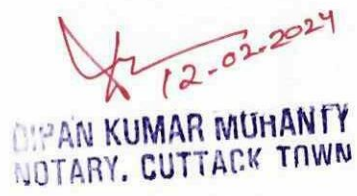 12-02-2024
DIPAN KUMAR MOHANTY
NOTARY. CUTTACK TOWN